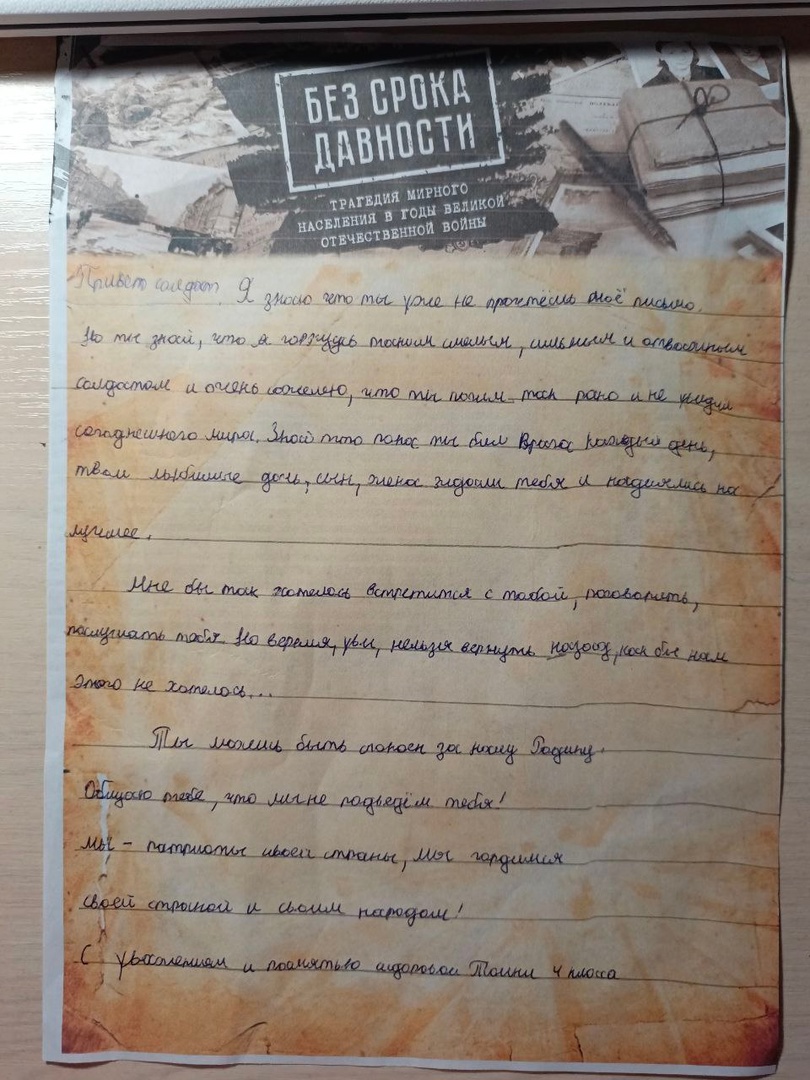 БЕЗ СРОКА
ДАВНОСТИ
ТРАГЕДИЯ МИРНОГО
НАСЕЛЕНИЯ В ГОДЫ ВЕЛИКОЙ
ОТЕЧЕСТВЕННОЙ ВОЙНЫ
Привет солдат. Я знаю что ты уже не прочтёшь моё письмо.
Но ты знай, что я горжусь таким смелым, сильным и отважным
солдатом и очень сожелею, что ты погиб так рано и не увидел
сегоднешнего мира. Знай что пока ты бил Врага каждый день,
твои любимые дочь, сын, жена ждали тебя и надеялись на
лучшее.
Мне бы так хотелось встретится с тобой, поговорить,
послушать тебя. Но время, увы, нельзя вернуть назад, как бы нам
этого не хотелось...
Ты можешь быть спокоен за нашу Родину.
Обещаю тебе, что мы не подведём тебя!
Мы - патриоты своей страны, мы гордимся
своей страной и своим народом!
С уважением и памятью Таини 4 класса